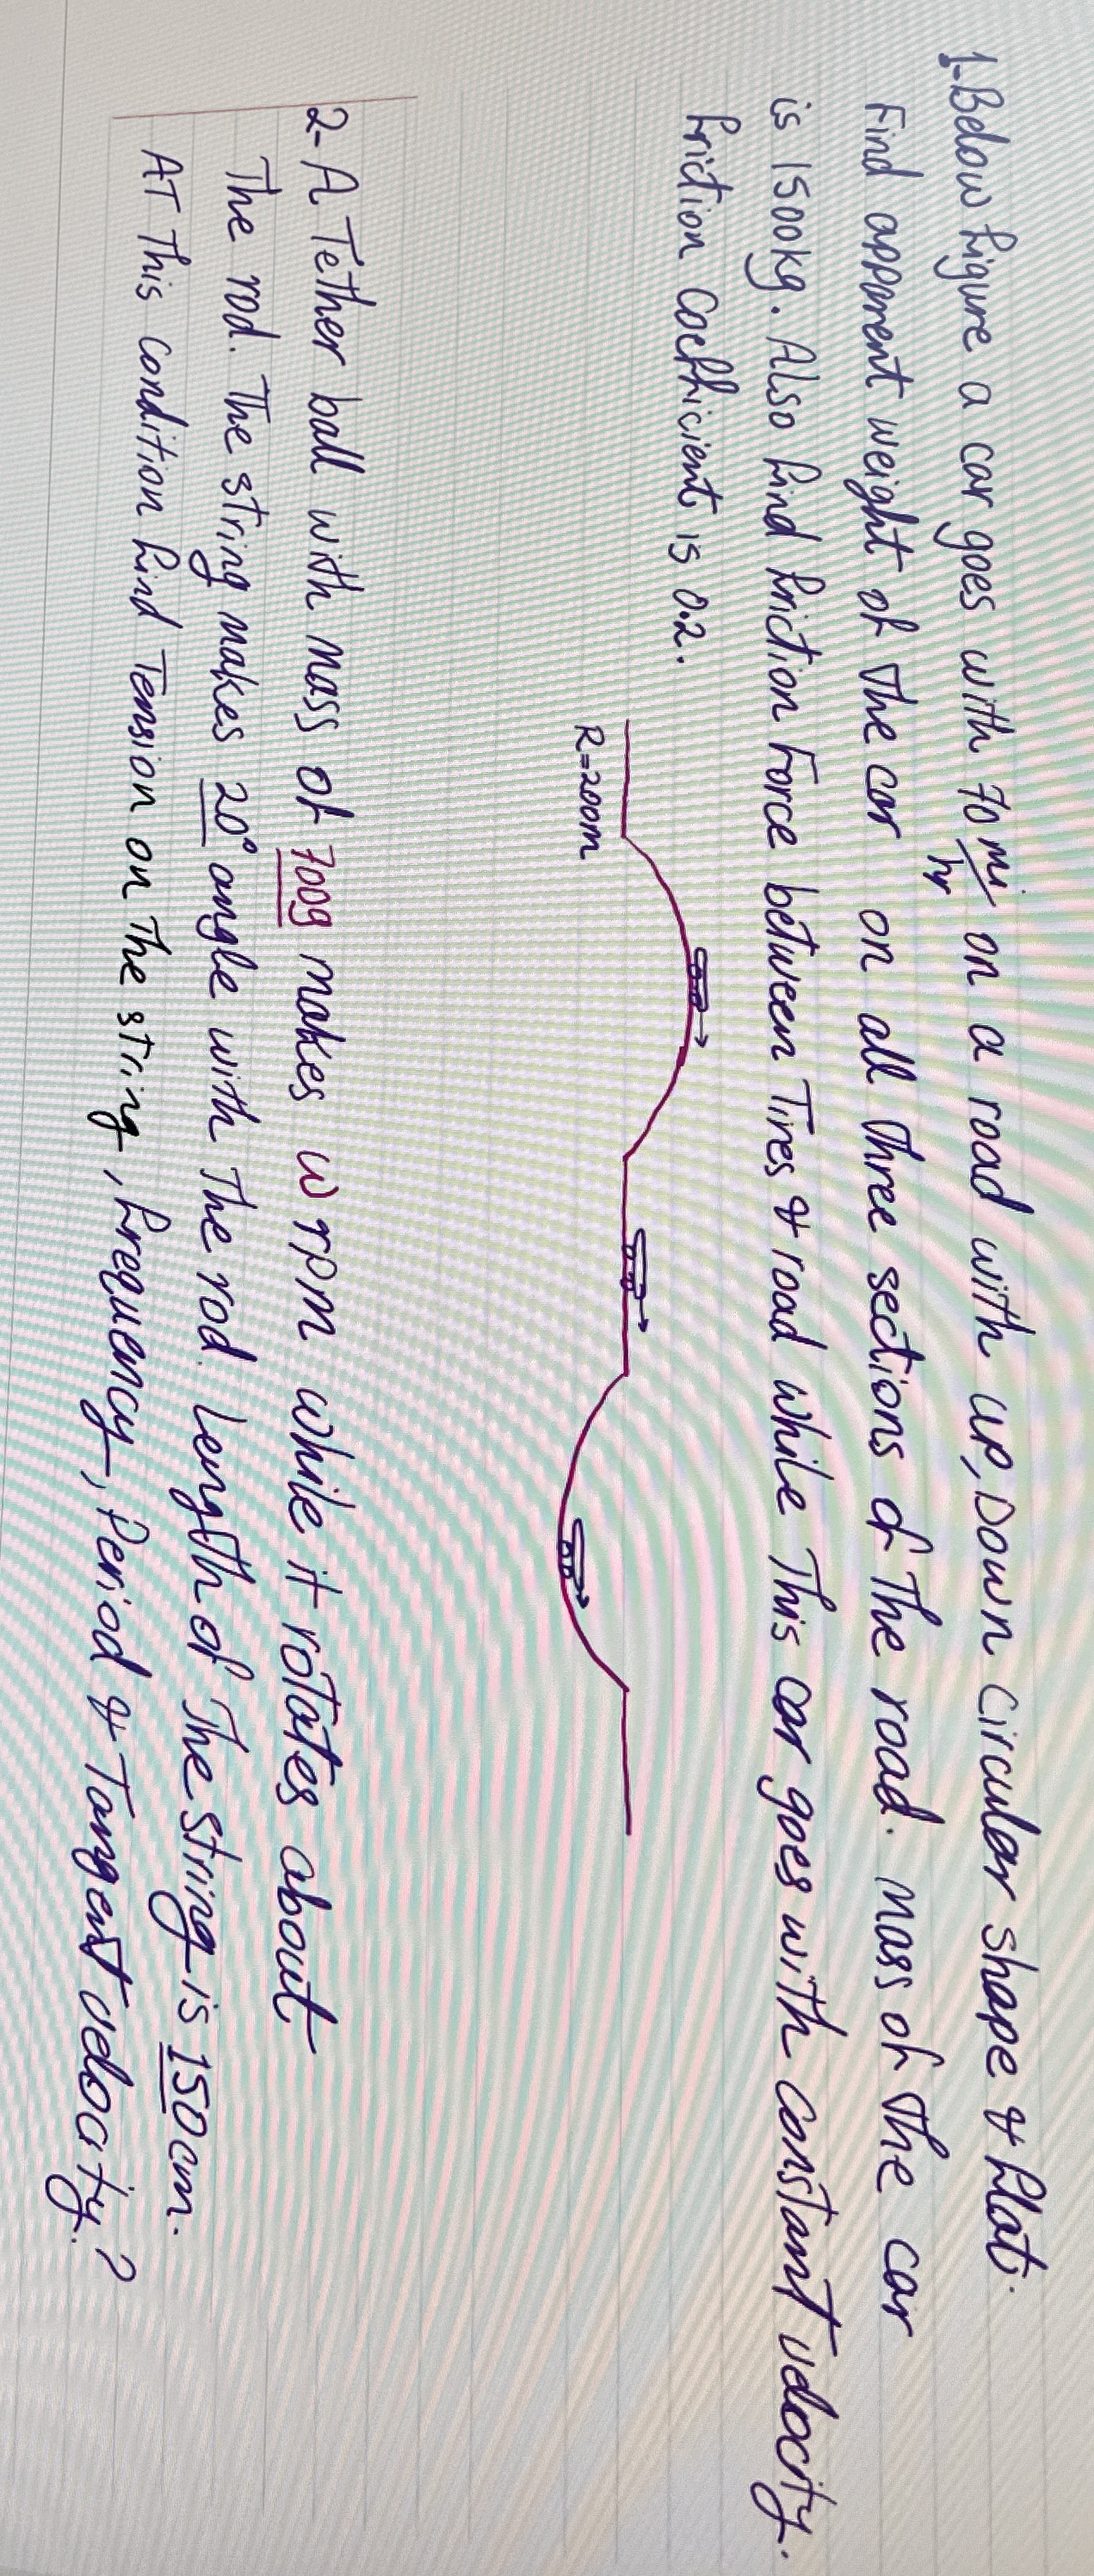 1-Below figure a car goes with 70 mi/hr on a road with up, Down circular shape & flat.
Find apparent weight of the car on all three sections of the road. mass of the car
is 1500kg. Also find friction Force between Tires & road while This car goes with constant velocity.
friction coefficient is 0.2.
R=200m
2- A Tether ball with mass of 700g makes ω rpm while it rotates about
The rod. The string makes 20° angle with The rod. Length of The string is 150cm.
AT This condition find Tension on The string, frequency, Period & Tangent velocity.?